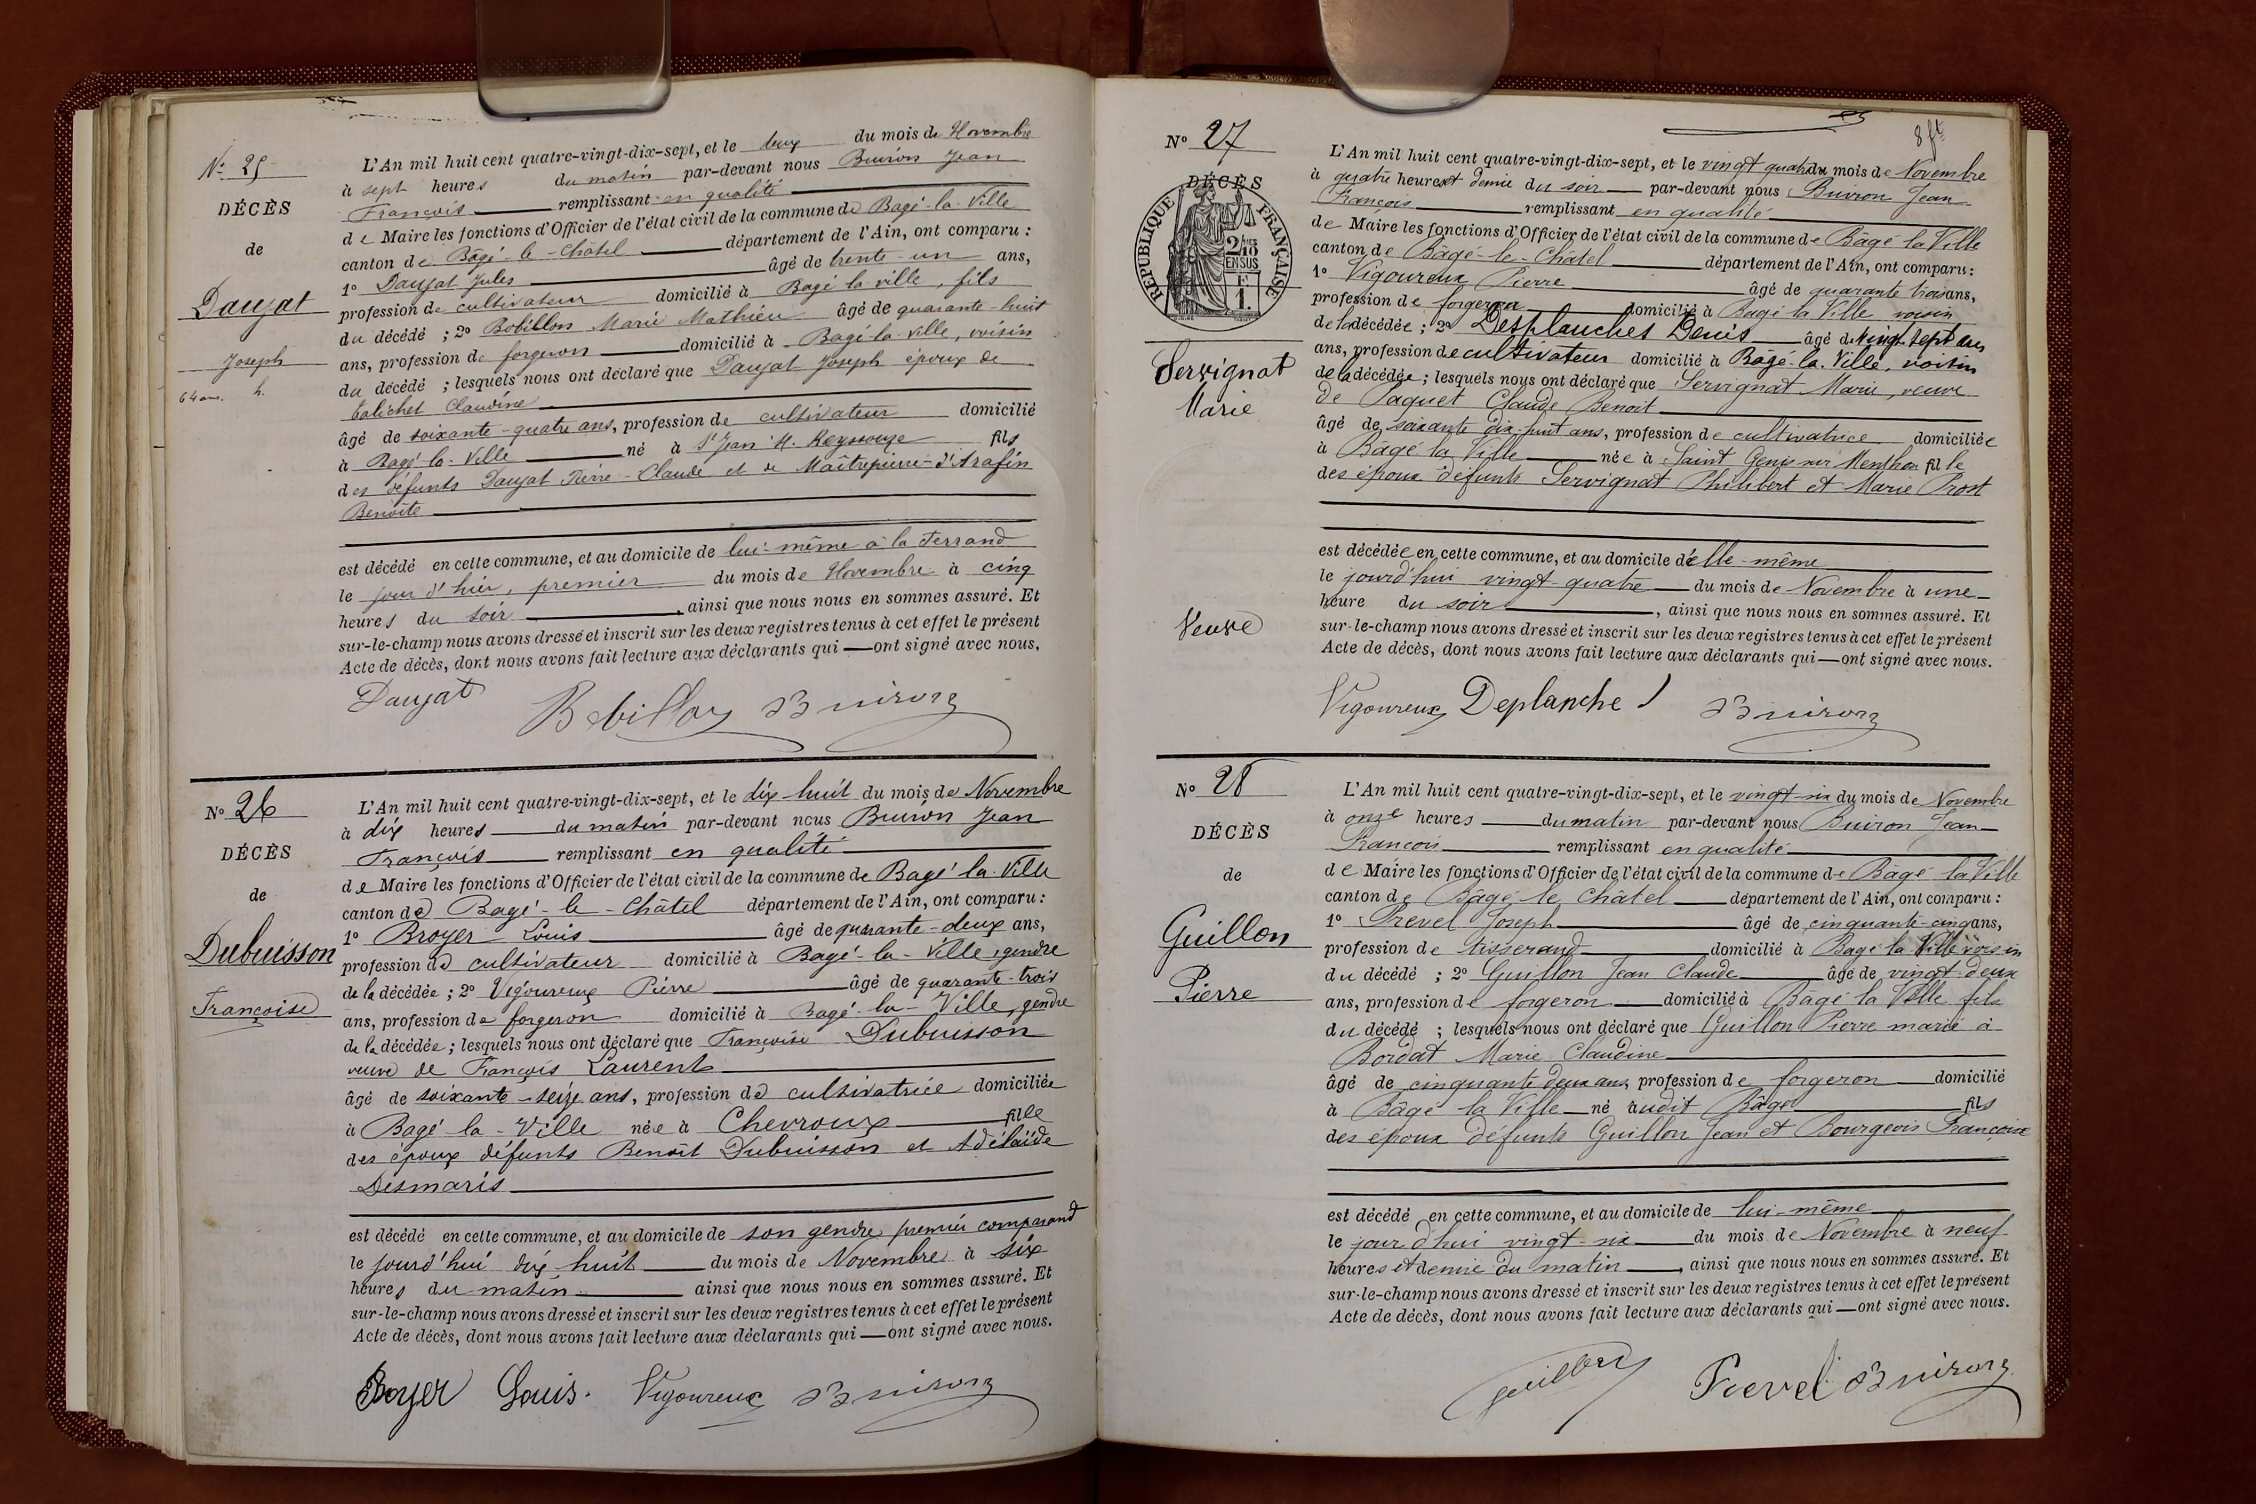 N° 25
DÉCÈS
de
Daujat
Joseph
64 ans. h.
L'An mil huit cent quatre-vingt-dix-sept, et le deux du mois de Novembre
à sept heures du matin par-devant nous Buiron Jean
François remplissant en qualité
de Maire les fonctions d'Officier de l'état civil de la commune de Bagé-la-Ville
canton de Bâgé-le-Châtel département de l'Ain, ont comparu :
1° Daujat Jules âgé de trente-un ans,
profession de cultivateur domicilié à Bagé la ville, fils
du décédé ; 2° Bobillon Marie Mathieu âgé de quarante-huit
ans, profession de forgeron domicilié à Bagé-la-Ville, voisin
du décédé ; lesquels nous ont déclaré que Daujat Joseph époux de
Claudine
âgé de soixante-quatre ans, profession de cultivateur domicilié
à Bagé-la-Ville né à St Jean s. Reyssouze fils
des défunts Daujat Pierre-Claude et de Maîtrepierre-d'Arafin
Benoite
est décédé en cette commune, et au domicile de lui-même à la Ferrand
le jour d'hier, premier du mois de Novembre à cinq
heures du soir, ainsi que nous nous en sommes assuré. Et
sur-le-champ nous avons dressé et inscrit sur les deux registres tenus à cet effet le présent
Acte de décès, dont nous avons fait lecture aux déclarants qui — ont signé avec nous.
Daujat Bobillon Buiron
N° 26
DÉCÈS
de
Dubuisson
Françoise
L'An mil huit cent quatre-vingt-dix-sept, et le dix-huit du mois de Novembre
à dix heures du matin par-devant nous Buiron Jean
François remplissant en qualité
de Maire les fonctions d'Officier de l'état civil de la commune de Bagé-la-Ville
canton de Bagé-le-Châtel département de l'Ain, ont comparu :
1° Broyer Louis âgé de quarante-deux ans,
profession de cultivateur domicilié à Bagé-la-Ville, gendre
de la décédée ; 2° Vigoureux Pierre âgé de quarante-trois
ans, profession de forgeron domicilié à Bagé-la-Ville, gendre
de la décédée ; lesquels nous ont déclaré que Françoise Dubuisson
veuve de François Laurent
âgé de soixante-seize ans, profession de cultivatrice domiciliée
à Bagé-la-Ville née à Chevroux fille
des époux défunts Benoît Dubuisson et Adélaïde
Desmaris
est décédé en cette commune, et au domicile de son gendre premier comparand
le jourd'hui dix-huit du mois de Novembre à six
heures du matin ainsi que nous nous en sommes assuré. Et
sur-le-champ nous avons dressé et inscrit sur les deux registres tenus à cet effet le présent
Acte de décès, dont nous avons fait lecture aux déclarants qui — ont signé avec nous.
Broyer Louis. Vigoureux Buiron
N° 27
DÉCÈS
RÉPUBLIQUE FRANÇAISE
Servignat
Marie
Veuve
L'An mil huit cent quatre-vingt-dix-sept, et le vingt quatre du mois de Novembre
à quatre heures et demie du soir par-devant nous Buiron Jean
François remplissant en qualité
de Maire les fonctions d'Officier de l'état civil de la commune de Bâgé la Ville
canton de Bâgé-le-Chatel département de l'Ain, ont comparu :
1° Vigoureux Pierre âgé de quarante trois ans,
profession de forgeron domicilié à Bagé la Ville voisin
de la décédée ; 2° Desplanches Denis âgé de vingt sept ans
ans, profession de cultivateur domicilié à Bâgé-la-Ville, voisin
de la décédée ; lesquels nous ont déclaré que Servignat Marie, veuve
de Paquet Claude Benoit
âgé de soixante dix-huit ans, profession de cultivatrice domiciliée
à Bâgé la Ville née à Saint Genis sur Menthon fille
des époux défunts Servignat Philibert et Marie Prost
est décédée en cette commune, et au domicile d'elle-même
le jourd'hui vingt-quatre du mois de Novembre à une
heure du soir, ainsi que nous nous en sommes assuré. Et
sur-le-champ nous avons dressé et inscrit sur les deux registres tenus à cet effet le présent
Acte de décès, dont nous avons fait lecture aux déclarants qui — ont signé avec nous.
Vigoureux Deplanche Buiron
N° 28
DÉCÈS
de
Guillon
Pierre
L'An mil huit cent quatre-vingt-dix-sept, et le vingt-six du mois de Novembre
à onze heures du matin par-devant nous Buiron Jean
François remplissant en qualité
de Maire les fonctions d'Officier de l'état civil de la commune de Bâgé la Ville
canton de Bâgé le Châtel département de l'Ain, ont comparu :
1° Prevel Joseph âgé de cinquante-cinq ans,
profession de tisserand domicilié à Bagé la Ville voisin
du décédé ; 2° Guillon Jean Claude âgé de vingt-deux
ans, profession de forgeron domicilié à Bâgé la Ville fils
du décédé ; lesquels nous ont déclaré que Guillon Pierre marié à
Bordat Marie Claudine
âgé de cinquante deux ans profession de forgeron domicilié
à Bâgé la Ville né audit Bâgé fils
des époux défunts Guillon Jean et Bourgeois Françoise
est décédé en cette commune, et au domicile de lui-même
le jourd'hui vingt-six du mois de Novembre à neuf
heures et demie du matin, ainsi que nous nous en sommes assuré. Et
sur-le-champ nous avons dressé et inscrit sur les deux registres tenus à cet effet le présent
Acte de décès, dont nous avons fait lecture aux déclarants qui — ont signé avec nous.
Guillon Prevel Buiron